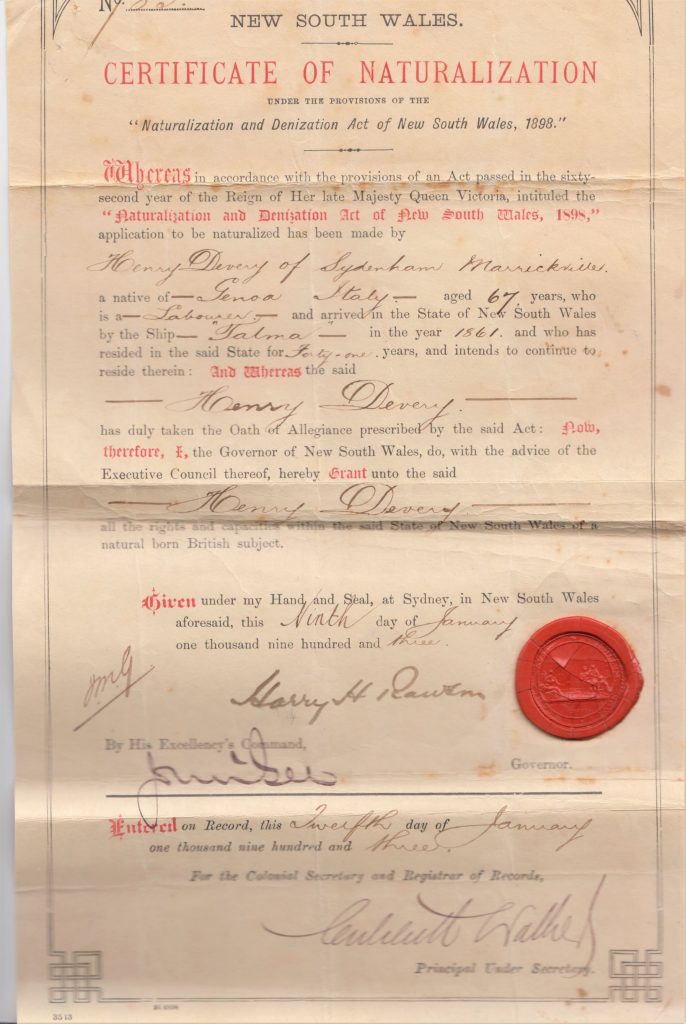 No.
NEW SOUTH WALES.
CERTIFICATE OF NATURALIZATION
UNDER THE PROVISIONS OF THE
"Naturalization and Denization Act of New South Wales, 1898."
Whereas in accordance with the provisions of an Act passed in the sixty-
second year of the Reign of Her late Majesty Queen Victoria, intituled the
"Naturalization and Denization Act of New South Wales, 1898,"
application to be naturalized has been made by
Henry Devery of Sydenham Marrickville.
a native of — Genoa Italy — aged 67 years, who
is a — Labourer — and arrived in the State of New South Wales
by the Ship — "Talma" — in the year 1861. and who has
resided in the said State for Forty-one years, and intends to continue to
reside therein: And Whereas the said
— Henry Devery. —
has duly taken the Oath of Allegiance prescribed by the said Act: Now,
therefore, I, the Governor of New South Wales, do, with the advice of the
Executive Council thereof, hereby Grant unto the said
— Henry Devery. —
all the rights and capacities within the said State of New South Wales of a
natural born British subject.
Given under my Hand and Seal, at Sydney, in New South Wales
aforesaid, this Ninth day of January
one thousand nine hundred and three.
Harry H Rawson
By His Excellency's Command,
Governor.
Entered on Record, this Twelfth day of January
one thousand nine hundred and three.
For the Colonial Secretary and Registrar of Records,
Principal Under Secretary.
3513